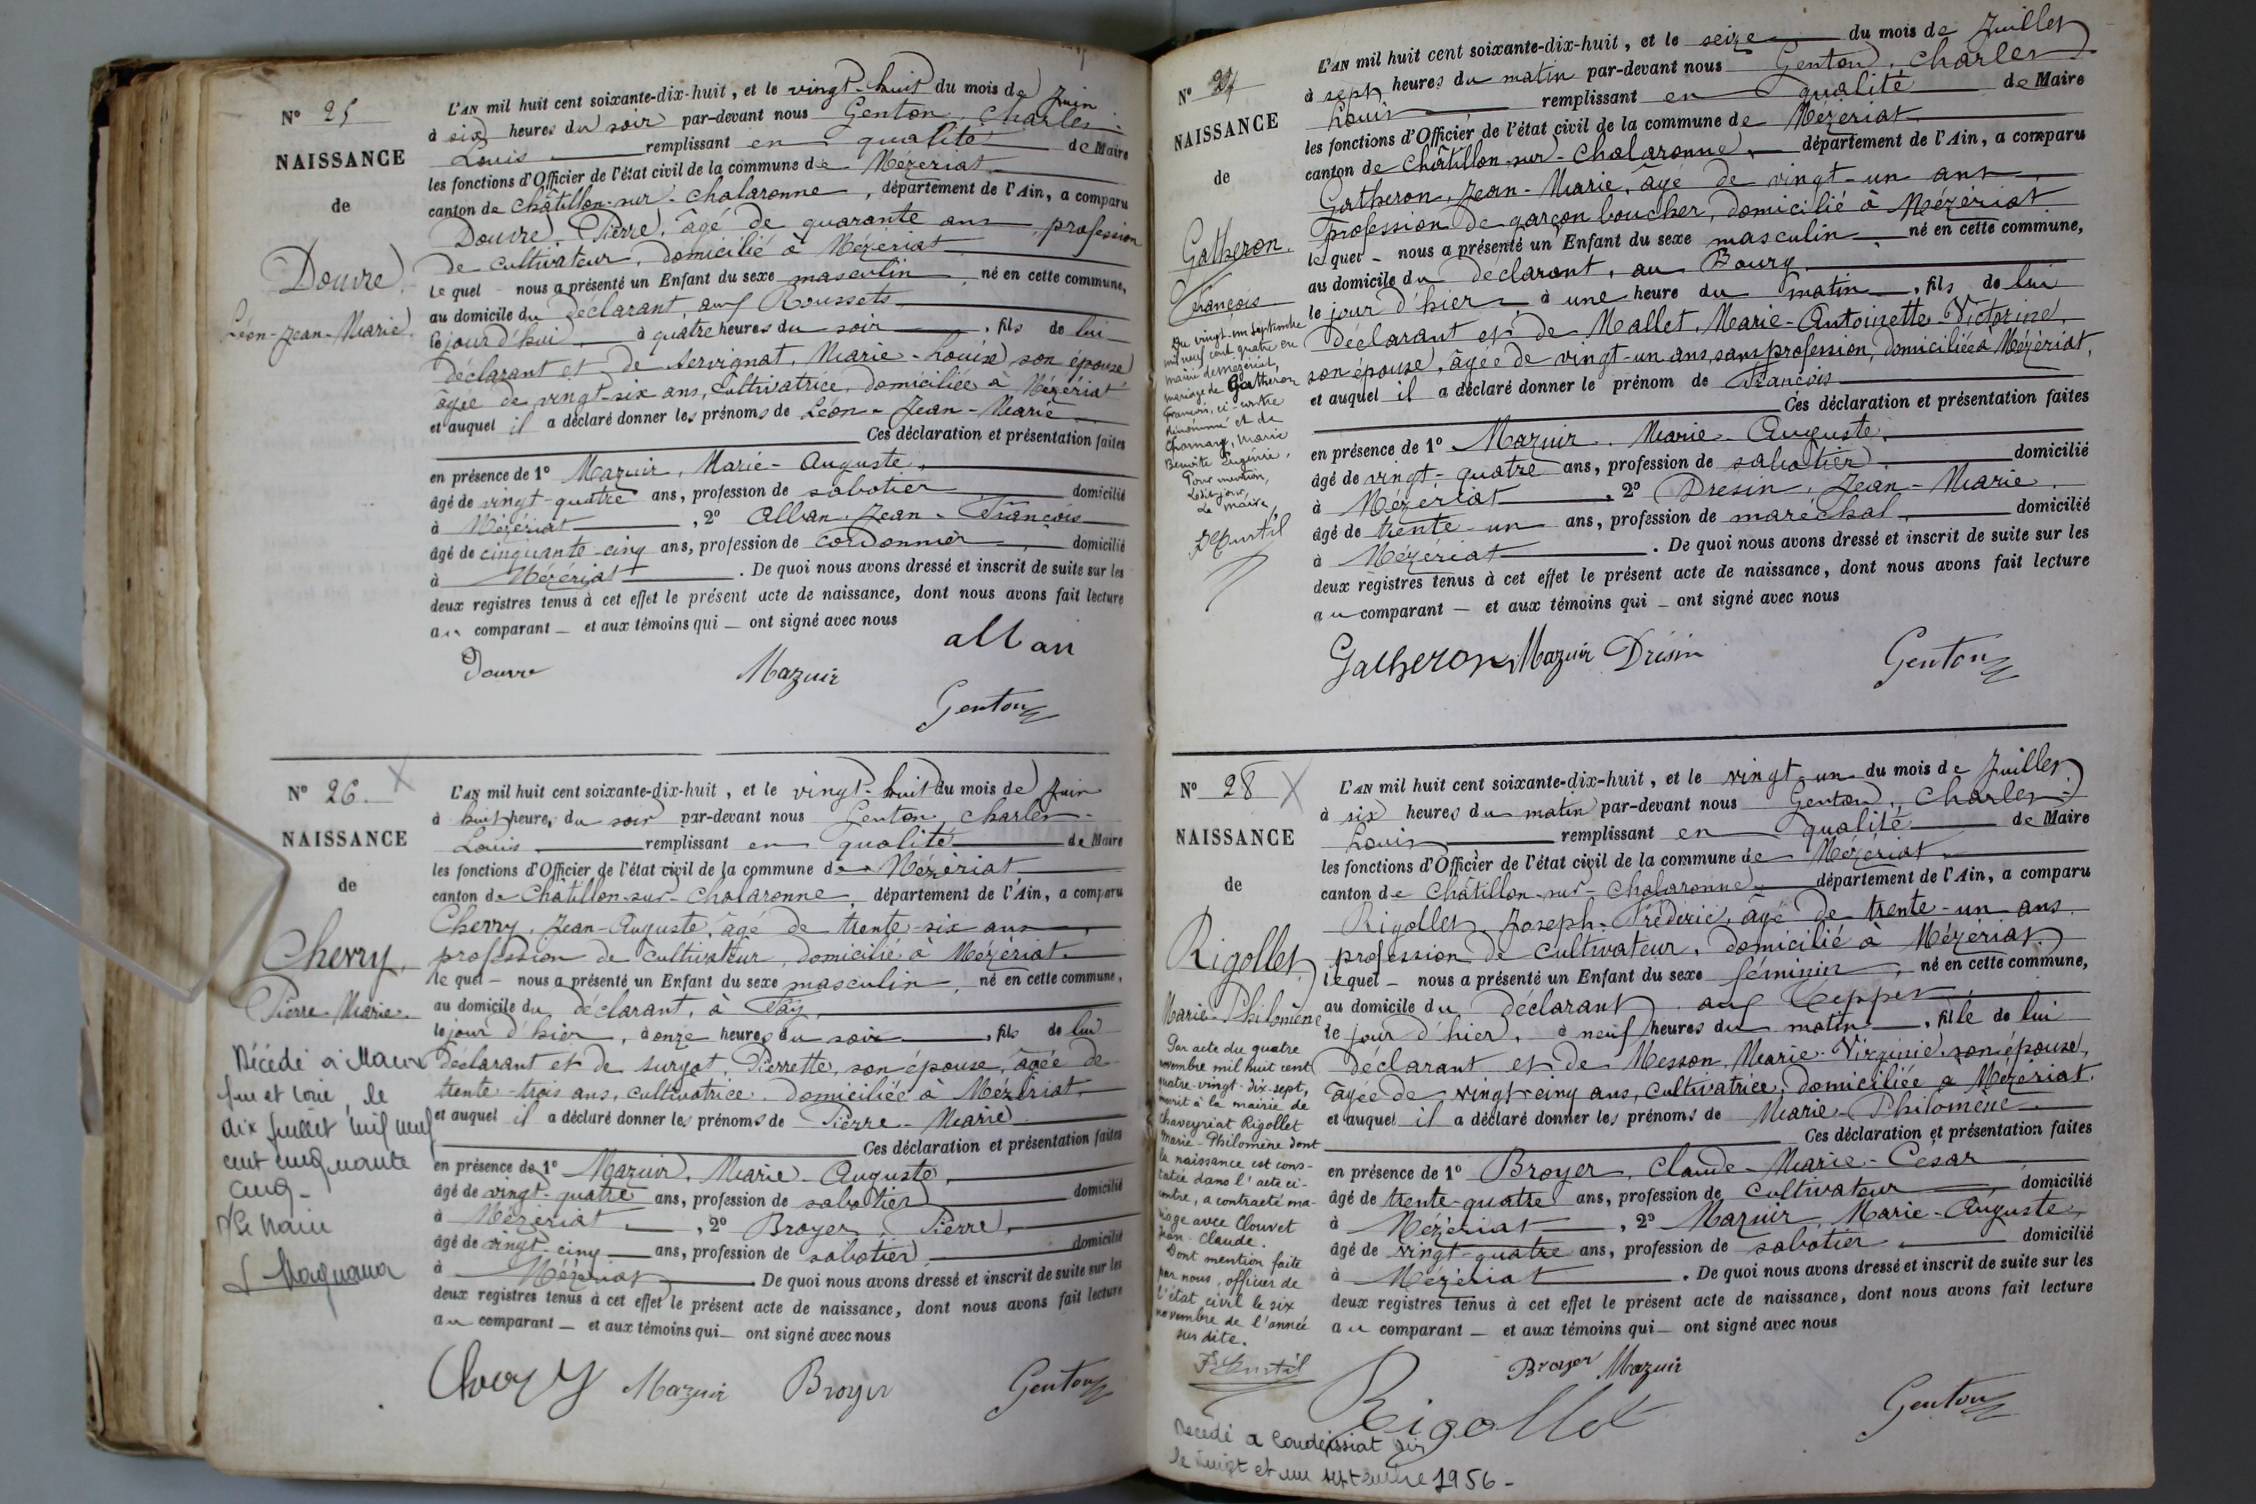 N° 25
NAISSANCE
de
Douvre
Léon-Jean-Marie.
L'AN mil huit cent soixante-dix-huit, et le vingt-huit du mois de Juin
à six heures du soir par-devant nous Genton, Charles-
Louis remplissant en qualité de Maire
les fonctions d'Officier de l'état civil de la commune de Mézériat
canton de Châtillon-sur-Chalaronne, département de l'Ain, a comparu
Douvre, Pierre, âgé de quarante ans, profession
de cultivateur, domicilié à Mézériat
le quel - nous a présenté un Enfant du sexe masculin, né en cette commune,
au domicile du déclarant, aux Roussets
le jour d'hui, à quatre heures du soir, fils de lui
déclarant et de Servignat, Marie-Louise, son épouse
âgée de vingt-six ans, cultivatrice, domiciliée à Mézériat
et auquel il a déclaré donner les prénoms de Léon-Jean-Marie
Ces déclaration et présentation faites
en présence de 1° Mazuir, Marie-Auguste,
âgé de vingt-quatre ans, profession de sabotier domicilié
à Mézériat, 2° Alban, Jean-François
âgé de cinquante-cinq ans, profession de cordonnier, domicilié
à Mézériat. De quoi nous avons dressé et inscrit de suite sur les
deux registres tenus à cet effet le présent acte de naissance, dont nous avons fait lecture
au comparant — et aux témoins qui — ont signé avec nous
alban
Douvre Mazuir
Genton
N° 26. X
NAISSANCE
de
Cherry,
Pierre-Marie.
Décédé à Macon
le
dix juillet mil neuf
cent cinquante
cinq -
Le Maire
L'AN mil huit cent soixante-dix-huit, et le vingt-huit du mois de Juin
à huit heures du soir par-devant nous Genton, Charles-
Louis remplissant en qualité de Maire
les fonctions d'Officier de l'état civil de la commune de Mézériat
canton de Châtillon-sur-Chalaronne, département de l'Ain, a comparu
Cherry, Jean-Auguste, âgé de trente-six ans,
profession de cultivateur, domicilié à Mézériat.
le quel — nous a présenté un Enfant du sexe masculin, né en cette commune,
au domicile du déclarant, à
le jour d'hier, à onze heures du soir, fils de lui
déclarant et de Surgot, Pierrette, son épouse, âgée de
trente-trois ans, cultivatrice, domiciliée à Mézériat,
et auquel il a déclaré donner les prénoms de Pierre-Marie
Ces déclaration et présentation faites
en présence de 1° Mazuir, Marie-Auguste,
âgé de vingt-quatre ans, profession de sabotier domicilié
à Mézériat, 2° Broyer, Pierre,
âgé de vingt-cinq ans, profession de sabotier domicilié
à Mézériat De quoi nous avons dressé et inscrit de suite sur les
deux registres tenus à cet effet le présent acte de naissance, dont nous avons fait lecture
au comparant — et aux témoins qui — ont signé avec nous
Mazuir Broyer Genton
N° 27
NAISSANCE
de
Gatheron.
François
Du vingt-un septembre
mil neuf cent quatre en
mairie de Mézériat,
mariage de Gatheron
François, ci-contre
dénommé et de
Charnay, Marie
Benoite Eugénie,
Pour mention,
Ledit jour,
Le maire,
L'AN mil huit cent soixante-dix-huit, et le seize du mois de Juillet
à sept heures du matin par-devant nous Genton, Charles
Louis remplissant en qualité de Maire
les fonctions d'Officier de l'état civil de la commune de Mézériat
canton de Châtillon-sur-Chalaronne, département de l'Ain, a comparu
Gatheron, Jean-Marie, âgé de vingt-un ans,
profession de garçon boucher, domicilié à Mézériat
le quel - nous a présenté un Enfant du sexe masculin, né en cette commune,
au domicile du déclarant, au Bourg
le jour d'hier, à une heure du matin, fils de lui
déclarant et de Mallet, Marie-Antoinette-Victorine,
son épouse, âgée de vingt-un ans, sans profession, domiciliée à Mézériat,
et auquel il a déclaré donner le prénom de François
Ces déclaration et présentation faites
en présence de 1° Mazuir, Marie-Auguste,
âgé de vingt-quatre ans, profession de sabotier, domicilié
à Mézériat, 2° Dresin, Jean-Marie,
âgé de trente-un ans, profession de maréchal, domicilié
à Mézériat. De quoi nous avons dressé et inscrit de suite sur les
deux registres tenus à cet effet le présent acte de naissance, dont nous avons fait lecture
au comparant — et aux témoins qui — ont signé avec nous
Gatheron Mazuir Drisin Genton
N° 28 X
NAISSANCE
de
Rigollet,
Marie-Philomène
Par acte du quatre
novembre mil huit cent
quatre-vingt-dix-sept,
inscrit à la mairie de
Chaveyriat Rigollet
Marie-Philomène dont
la naissance est cons-
tatée dans l'acte ci-
contre, a contracté ma-
riage avec Clouvet
Jean-Claude.
Dont mention faite
par nous, officier de
l'état civil le six
novembre de l'année
sus dite.
L'AN mil huit cent soixante-dix-huit, et le vingt-un du mois de Juillet
à six heures du matin par-devant nous Genton, Charles-
Louis remplissant en qualité de Maire
les fonctions d'Officier de l'état civil de la commune de Mézériat
canton de Châtillon-sur-Chalaronne, département de l'Ain, a comparu
Rigollet, Joseph-Fréderic, âgé de trente-un ans
profession de cultivateur, domicilié à Mézériat
le quel — nous a présenté un Enfant du sexe féminin, né en cette commune,
au domicile du déclarant, aux Teppes,
le jour d'hier, à neuf heures du matin, fille de lui
déclarant et de Messon, Marie-Virginie, son épouse,
âgée de vingt-cinq ans, cultivatrice, domiciliée à Mézériat,
et auquel il a déclaré donner les prénoms de Marie-Philomène
Ces déclaration et présentation faites
en présence de 1° Broyer, Claude-Marie-César
âgé de trente-quatre ans, profession de cultivateur, domicilié
à Mézériat, 2° Mazuir, Marie-Auguste,
âgé de vingt-quatre ans, profession de sabotier domicilié
à Mézériat. De quoi nous avons dressé et inscrit de suite sur les
deux registres tenus à cet effet le présent acte de naissance, dont nous avons fait lecture
au comparant — et aux témoins qui — ont signé avec nous
Broyer Mazuir
Rigollet Genton
Décédé a Condeissiat
le vingt et un septembre 1956 -